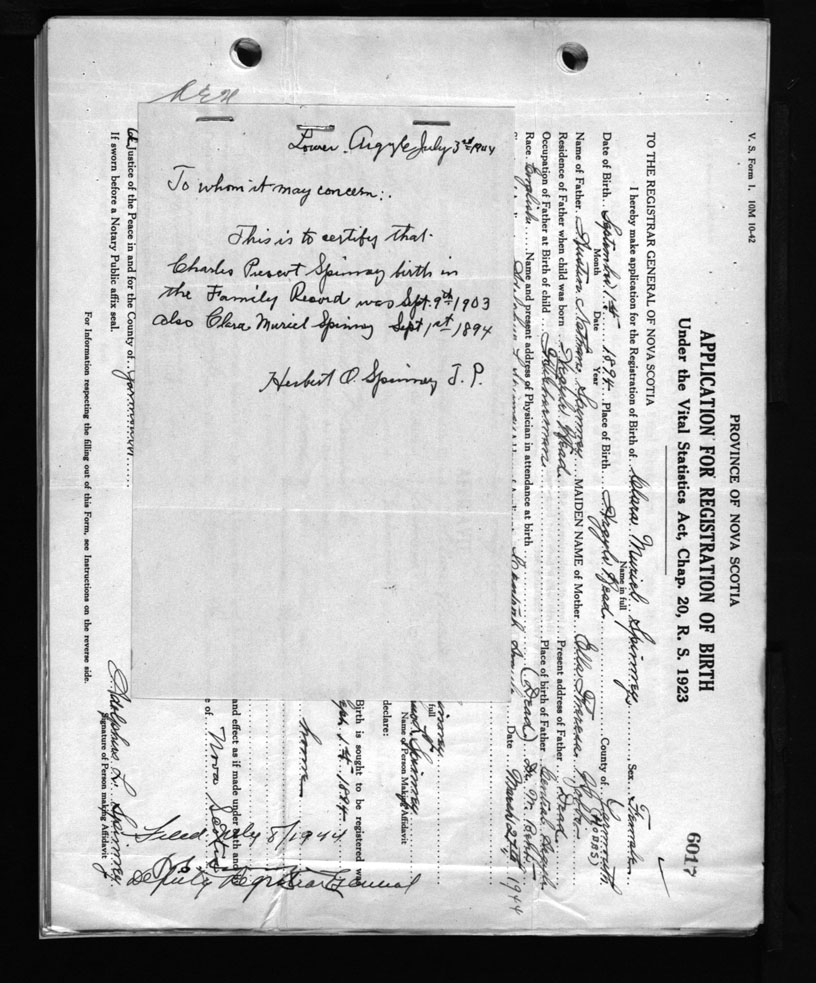 V. S. Form 1. 10M 10-42
PROVINCE OF NOVA SCOTIA
6017
APPLICATION FOR REGISTRATION OF BIRTH
Under the Vital Statistics Act, Chap. 20, R. S. 1923
TO THE REGISTRAR GENERAL OF NOVA SCOTIA
I hereby make application for the Registration of Birth of Clara Muriel Spinney Sex Female
Name in full
Date of Birth September 1st 1894 Place of Birth Argyle Head County of Yarmouth
Month Date Year
Name of Father Nathan Spinney MAIDEN NAME of Mother Ella Theresa
Residence of Father when child was born Argyle Head Present address of Father Dead
Occupation of Father at Birth of child Fisherman Place of birth of Father Central Argyle
Race English Name and present address of Physician in attendance at birth (Dead) Dr. M.
Date March 27th 1944
full
Name of Person Making Affidavit
declare:
Birth is sought to be registered was
1st 1894
home
and effect as if made under oath and
e of Nova Scotia
Filed July 8/1944
Deputy Registrar General
Adolphus L. Spinney
Signature of Person making Affidavit
Justice of the Peace in and for the County of Yarmouth
If sworn before a Notary Public affix seal.
For Information respecting the filling out of this Form, see Instructions on the reverse side.
Lower Argyle July 3rd 1944
To whom it may concern:.
This is to certify that
Charles Prescot Spinney birth in
the Family Record was Sept. 9th 1903
also Clara Muriel Spinney Sept 1st 1894
Herbert O. Spinney J. P.